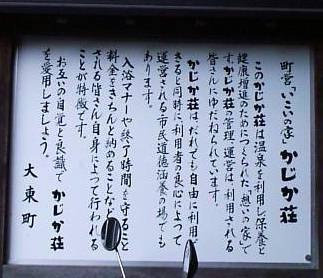 町営「いこいの家」かじか荘
このかじか荘は温泉を利用し保養と
健康増進のためにつくられた「憩いの家」で
す。かじか荘の管理、運営は、利用される
皆さんにゆだねられています。
かじか荘は、だれでも自由に利用で
きると同時に、利用者の良心によって
運営される市民道徳涵養の場でも
あります。
入浴マナーや終了時間を守ること
料金をきちんと納めることなど
される皆さん自身によって行われる
ことが特徴です。
お互いの自覚と良識で かじか荘
を愛用しましょう。
大東町